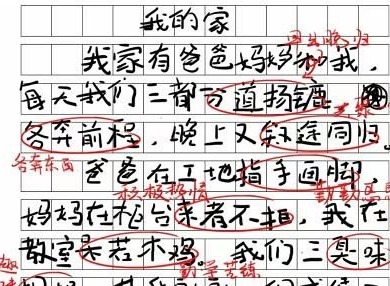 我的家
早出晚归
我家有爸爸妈妈和我，
每天我们三都分道扬镳，
各奔前程，晚上又殊途同归。
各奔东西
爸爸在工地指手画脚，
积极热情
妈妈在柜台来者不拒，我在
教室呆若木鸡。我们三臭味
勤学苦练